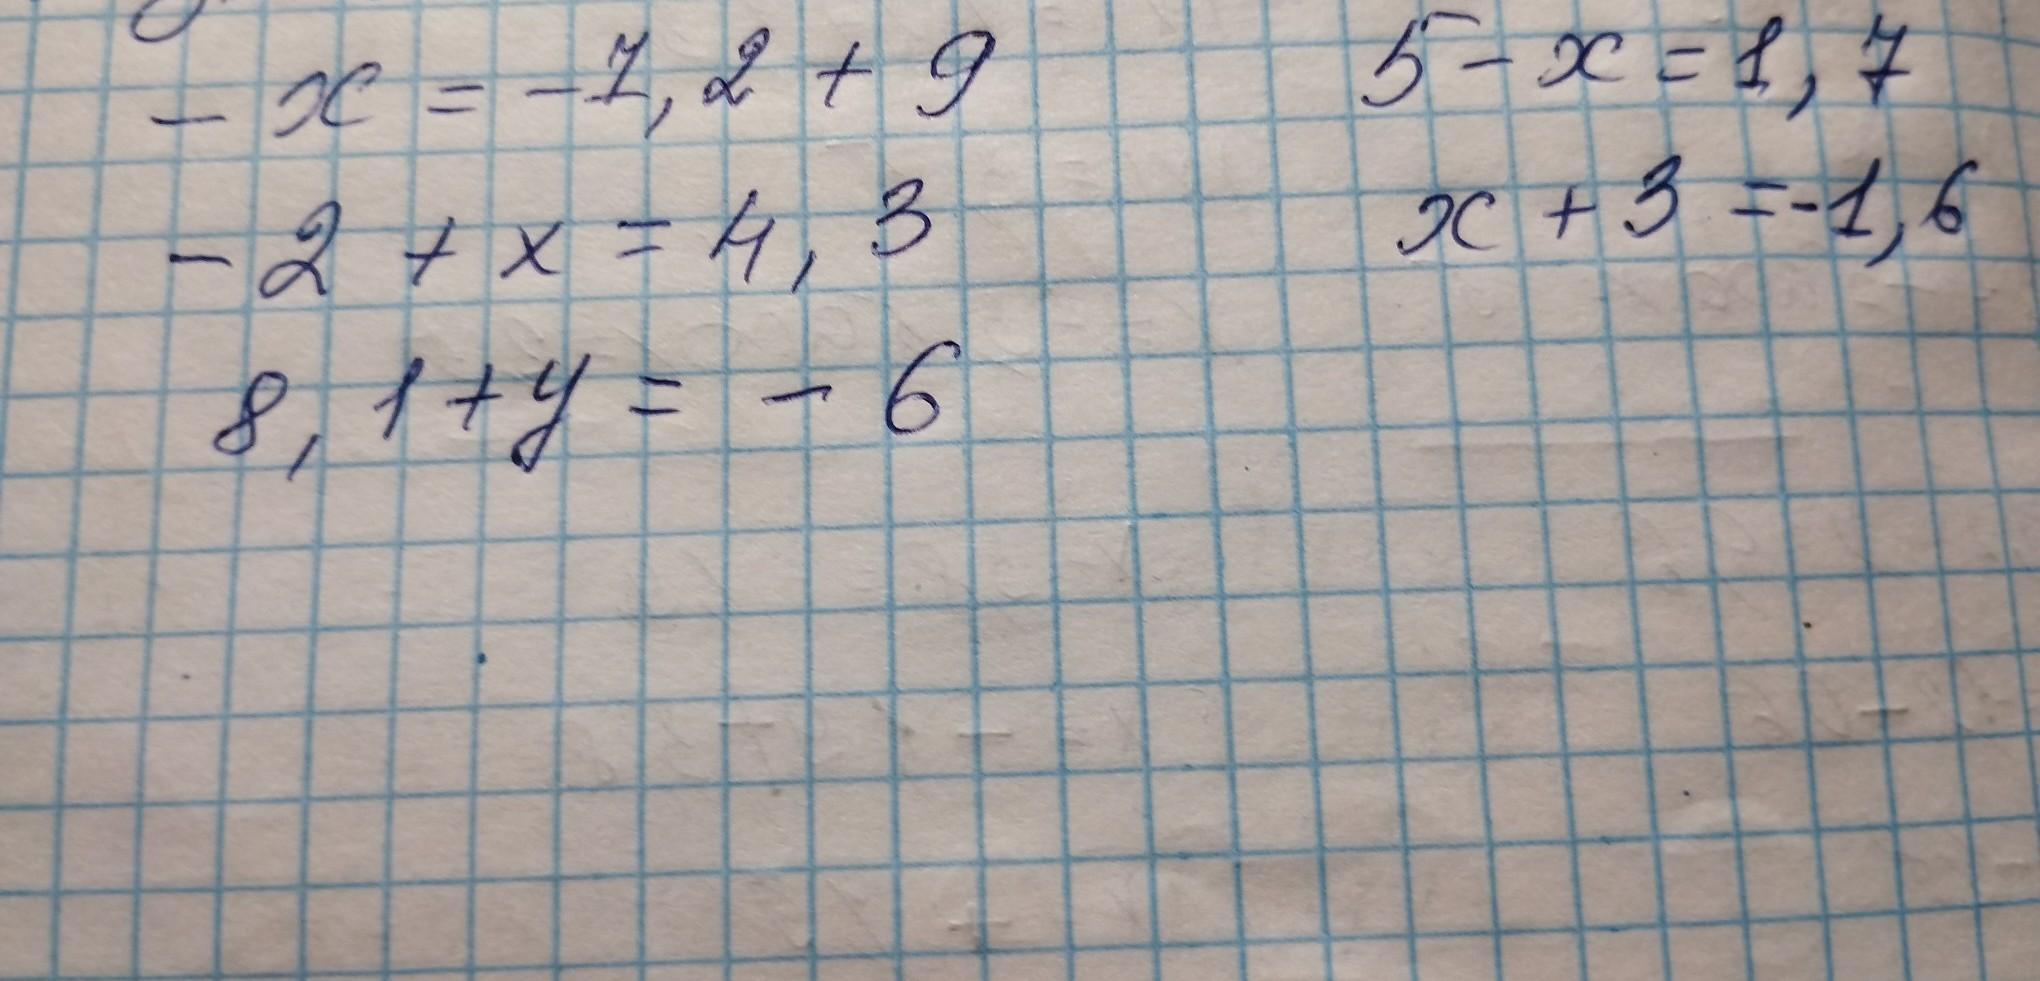 - x = -1,2 + 9
- 2 + x = 4,3
8,1 + y = - 6
5 - x = 1,7
x + 3 = -1,6